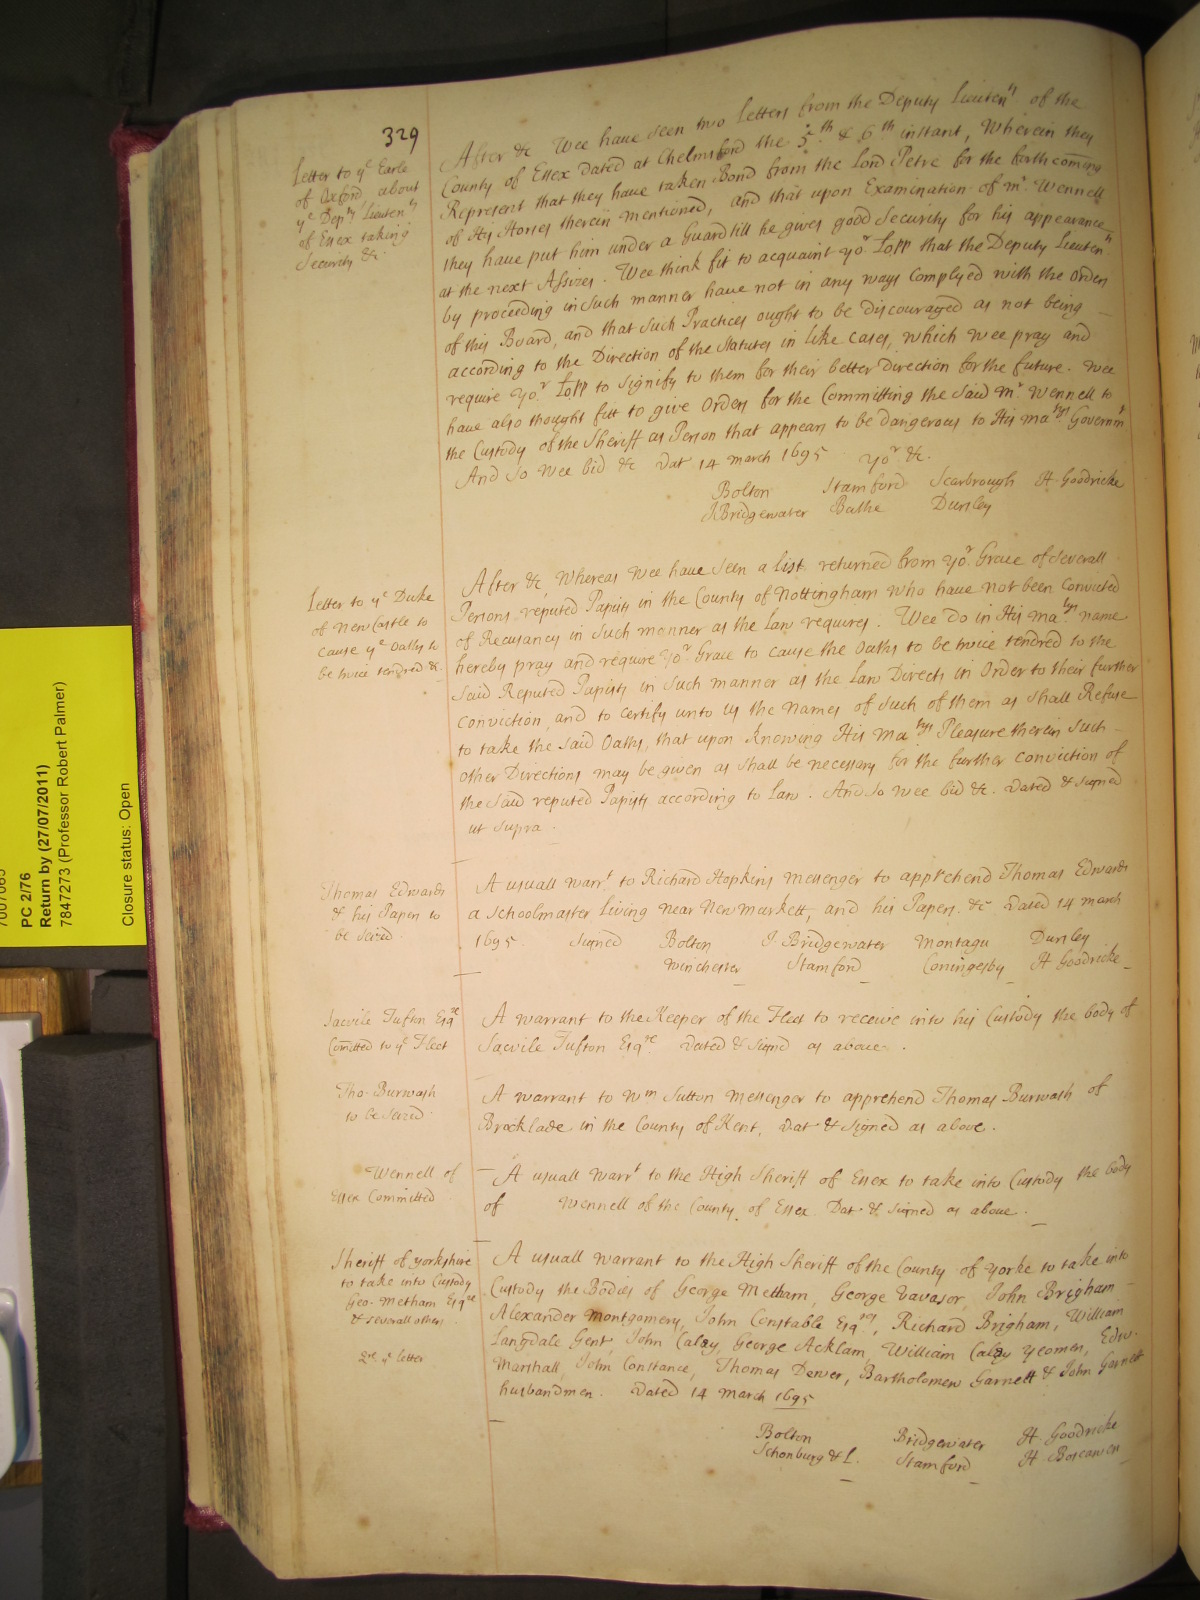 329
Letter to yᵉ Earle
of Oxford about
yᵉ Depᵗʸ Lieutenᵗˢ
of Essex taking
Security &c.
After &c Wee have seen two Letters from the Deputy Lieutenᵗˢ of the
County of Essex Dated at Chelmsford the 5ᵗʰ & 6ᵗʰ instant, Wherein they
Represent that they have taken Bond from the Lord Petre for the forthcoming
of His Horses therein mentioned, and that upon Examination of mʳ Wennell
they have put him under a Guard till he gives good Security for his appearance
at the next Assizes. Wee think fit to acquaint yoʳ Lopp that the Deputy Lieutenᵗˢ
by proceeding in such manner have not in any ways Complyed with the Orders
of this Board, and that such Practices ought to be discouraged as not being
according to the Direction of the Statutes in like cases, which wee pray and
require yoʳ Lopp to signify to them for their better direction for the future. Wee
have also thought fitt to give Orders for the Committing the said mʳ Wennell to
the Custody of the Sheriff as Person that appears to be dangerous to His Maᵗʸˢ Governmᵗ
And so wee bid &c Dat 14 March 1695 yoʳ &c.
Bolton Stamford Scarbrough H. Goodricke
J Bridgewater Bathe Dursley
Letter to yᵉ Duke
of New Castle to
cause yᵉ Oaths to
be twice tendred &c
After &c, Whereas Wee have seen a list returned from yoʳ Grace of severall
Persons reputed Papists in the County of Nottingham who have not been Convicted
of Recusancy in such manner as the Law requires. Wee do in His Maᵗʸˢ name
hereby pray and require yoʳ Grace to cause the Oaths to be twice tendred to the
said Reputed Papists in such manner as the Law Directs in Order to their further
conviction, and to certify unto us the Names of such of them as shall Refuse
to take the said Oaths, that upon Knowing His Maᵗʸˢ Pleasure therein such
other Directions may be given as shall be necessary for the further conviction of
the said reputed Papists according to Law. And so wee bid &c. Dated & signed
ut supra.
Thomas Edwards
& his Papers to
be seized
A usuall warrᵗ to Richard Hopkins Messenger to apprehend Thomas Edwards
a Schoolmaster Living near New markett, and his Papers &c Dated 14 march
1695. Signed Bolton J. Bridgewater Montagu Dursley
Winchester Stamford Coningesby H Goodricke
Sacvile Tufton Esqʳᵉ
Comitted to yᵉ Fleet
A warrant to the Keeper of the Fleet to receive into his Custody the body of
Sacvile Tufton Esqʳᵉ Dated & signed as above.
Tho. Burwash
to be Seized
A warrant to Wᵐ Sutton messenger to apprehend Thomas Burwash of
Brocklade in the County of Kent, Dat & signed as above.
Wennell of
Essex Committed
A usuall warrᵗ to the High Sheriff of Essex to take into Custody the body
of Wennell of the County of Essex Dat & signed as above.
Sheriff of yorkshire
to take into Custody
Geo. Metham Esqʳᵉ
& severall others
yᵉ letter
A usuall warrant to the High Sheriff of the County of yorke to take into
Custody the Bodies of George Metham, George vavasor, John Brigham
Alexander Montgomery, John Constable Esqʳᵉˢ, Richard Brigham, William
Langdale Gent, John Caley, George Acklam, William Caley yeomen, Edw.
Marshall, John Constance, Thomas Denver, Bartholomew Garnett & John Garnett
husbandmen. Dated 14 March 1695
Bolton Bridgewater H. Goodricke
Schonburg & L. Stamford H. Boscawen
PC 2/76
Return by (27/07/2011)
7847273 (Professor Robert Palmer)
Closure status: Open